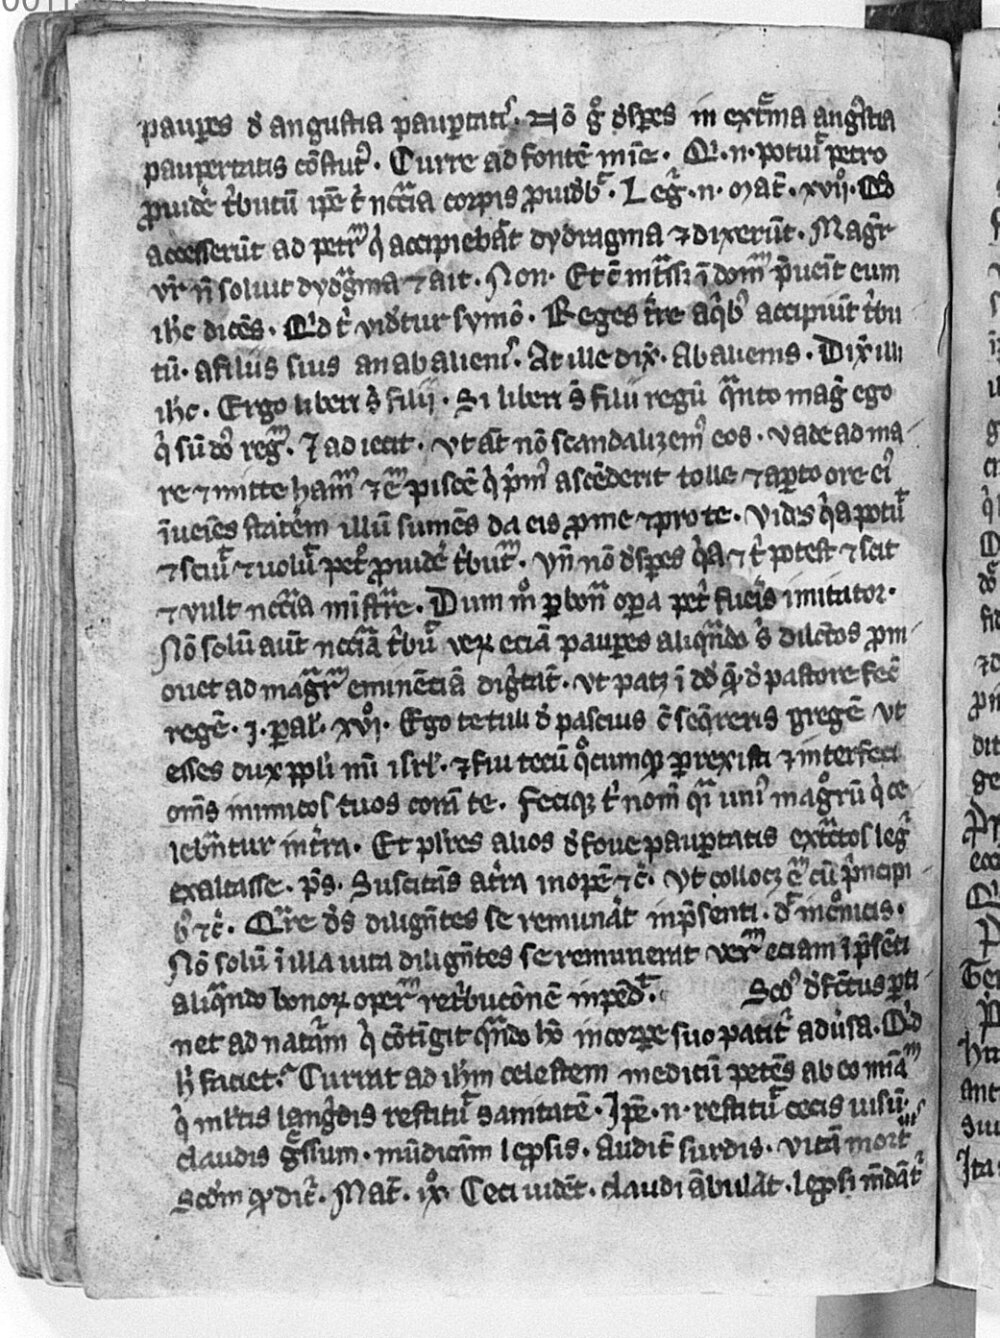 paup̄es đ angustia paup̄tatis. Nō g° đsp̄es in ext̄ma angustia
paupertatis cōstitut9. Curre ad fontē mīe. Q̇. n. potuit petro
ꝓuide᷑ t̓butū ip̄e t̓ nccīa corpis ꝓuideb̓. Leg̓. n. Mat̓. xvij°.
accesserūt ad petrū q̓ accipiebāt dydragma ⁊ dixerūt. Mag̓r
vr̄ nō soluit dydragma ⁊ ait. Non. Et cū int̓sset ī domū p̄uenit eum
ih̄c dicēs. Q̓d t̓ videtur symō. Reges t̓re a q̓b9 accipiūt t̓bu
tū. a filiis suis an ab alienis. At ille dix̓. ab alienis. Dix̓ illi
ih̄c. Ergo liberi s̄t filij. Si liberi s̄t filii regū q̄nto mag̓ ego
q̓ sū reg̓. ⁊ adiecit. vt aūt nō scandalizem9 eos. vade ad ma
re ⁊ mitte hamū ⁊ eū piscē q̓ p̓m9 ascēderit tolle ⁊ ap̄to ore ei9
īueies statēm illū sumēs da eis ꝓ me ⁊ pro te. Vidis q̓a potuit
⁊ sciuit ⁊ voluit pet° ꝓuide᷑ t̓butū. Vn̄ nō đsp̄es q̓a ⁊ t̓ potest ⁊ scit
⁊ vult nccīa mīstrare. Dum m° p̄ bona op̄a pet̓ fueis imitator.
Nō solū aūt nccīa t̓buit verū eciā paup̄es aliq̄ndo s̓ dilc̄os ꝓm
ouet ad mag̓r eminēciā dig̓tat̓. vt patꝫ ī dd̄ q̄ đ pastore fec̄
regē. j. p̄al̓. xvij°. Ego te tuli đ pascuis cū seq̄reris gregē vt
esses dux ppl̄i mī isrl̓. ⁊ fui tecū q°cumqꝫ p̄rexisti ⁊ interfeci
om̄s inimicos tuos corā te. Feciqꝫ t̓ nom̄ q̄i uni9 mag°rū q̓ ce
lebn̄tur in t̓ra. Et pl̄res alios đ foue paup̄tatis ext̄ctos leg̓
exaltasse. p̄s. Suscitās a t̓ra inopē ⁊c̓. Vt collocꝫ eū cū p̓ncipi
b9 ⁊c̓. Q̄re d̄s dilign̄tes se remun̄at in p̄senti.
Nō solū ī illa uita dilign̄tes se remunerat verū eciam ī p̄sēti
aliq̄ndo bonoꝝ operū ret̓bucōnē inpēdit. Sc̄ds đfc̄tus p̄ti
net ad nat̄am q̓ cōtīgit q̄ndo h̄o in corpe suo patit̓ adu̓sa. Q̓d
h̓ faciet. Currat ad ih̄m celestem medicū petēs ab eo mīam
q̓ ml̄tis lang̓dis restituit sanitatē. Ip̄e. n. restituit cecis uisū.
claudis g̓ssum. mūdicām lep̄sis. auditū surdis. vitā mortuis
Scd̄m qđ dicit̓. Mat̓. ix°. Ceci uidēt. claudi ābulāt. lep̄si mūdāt̓